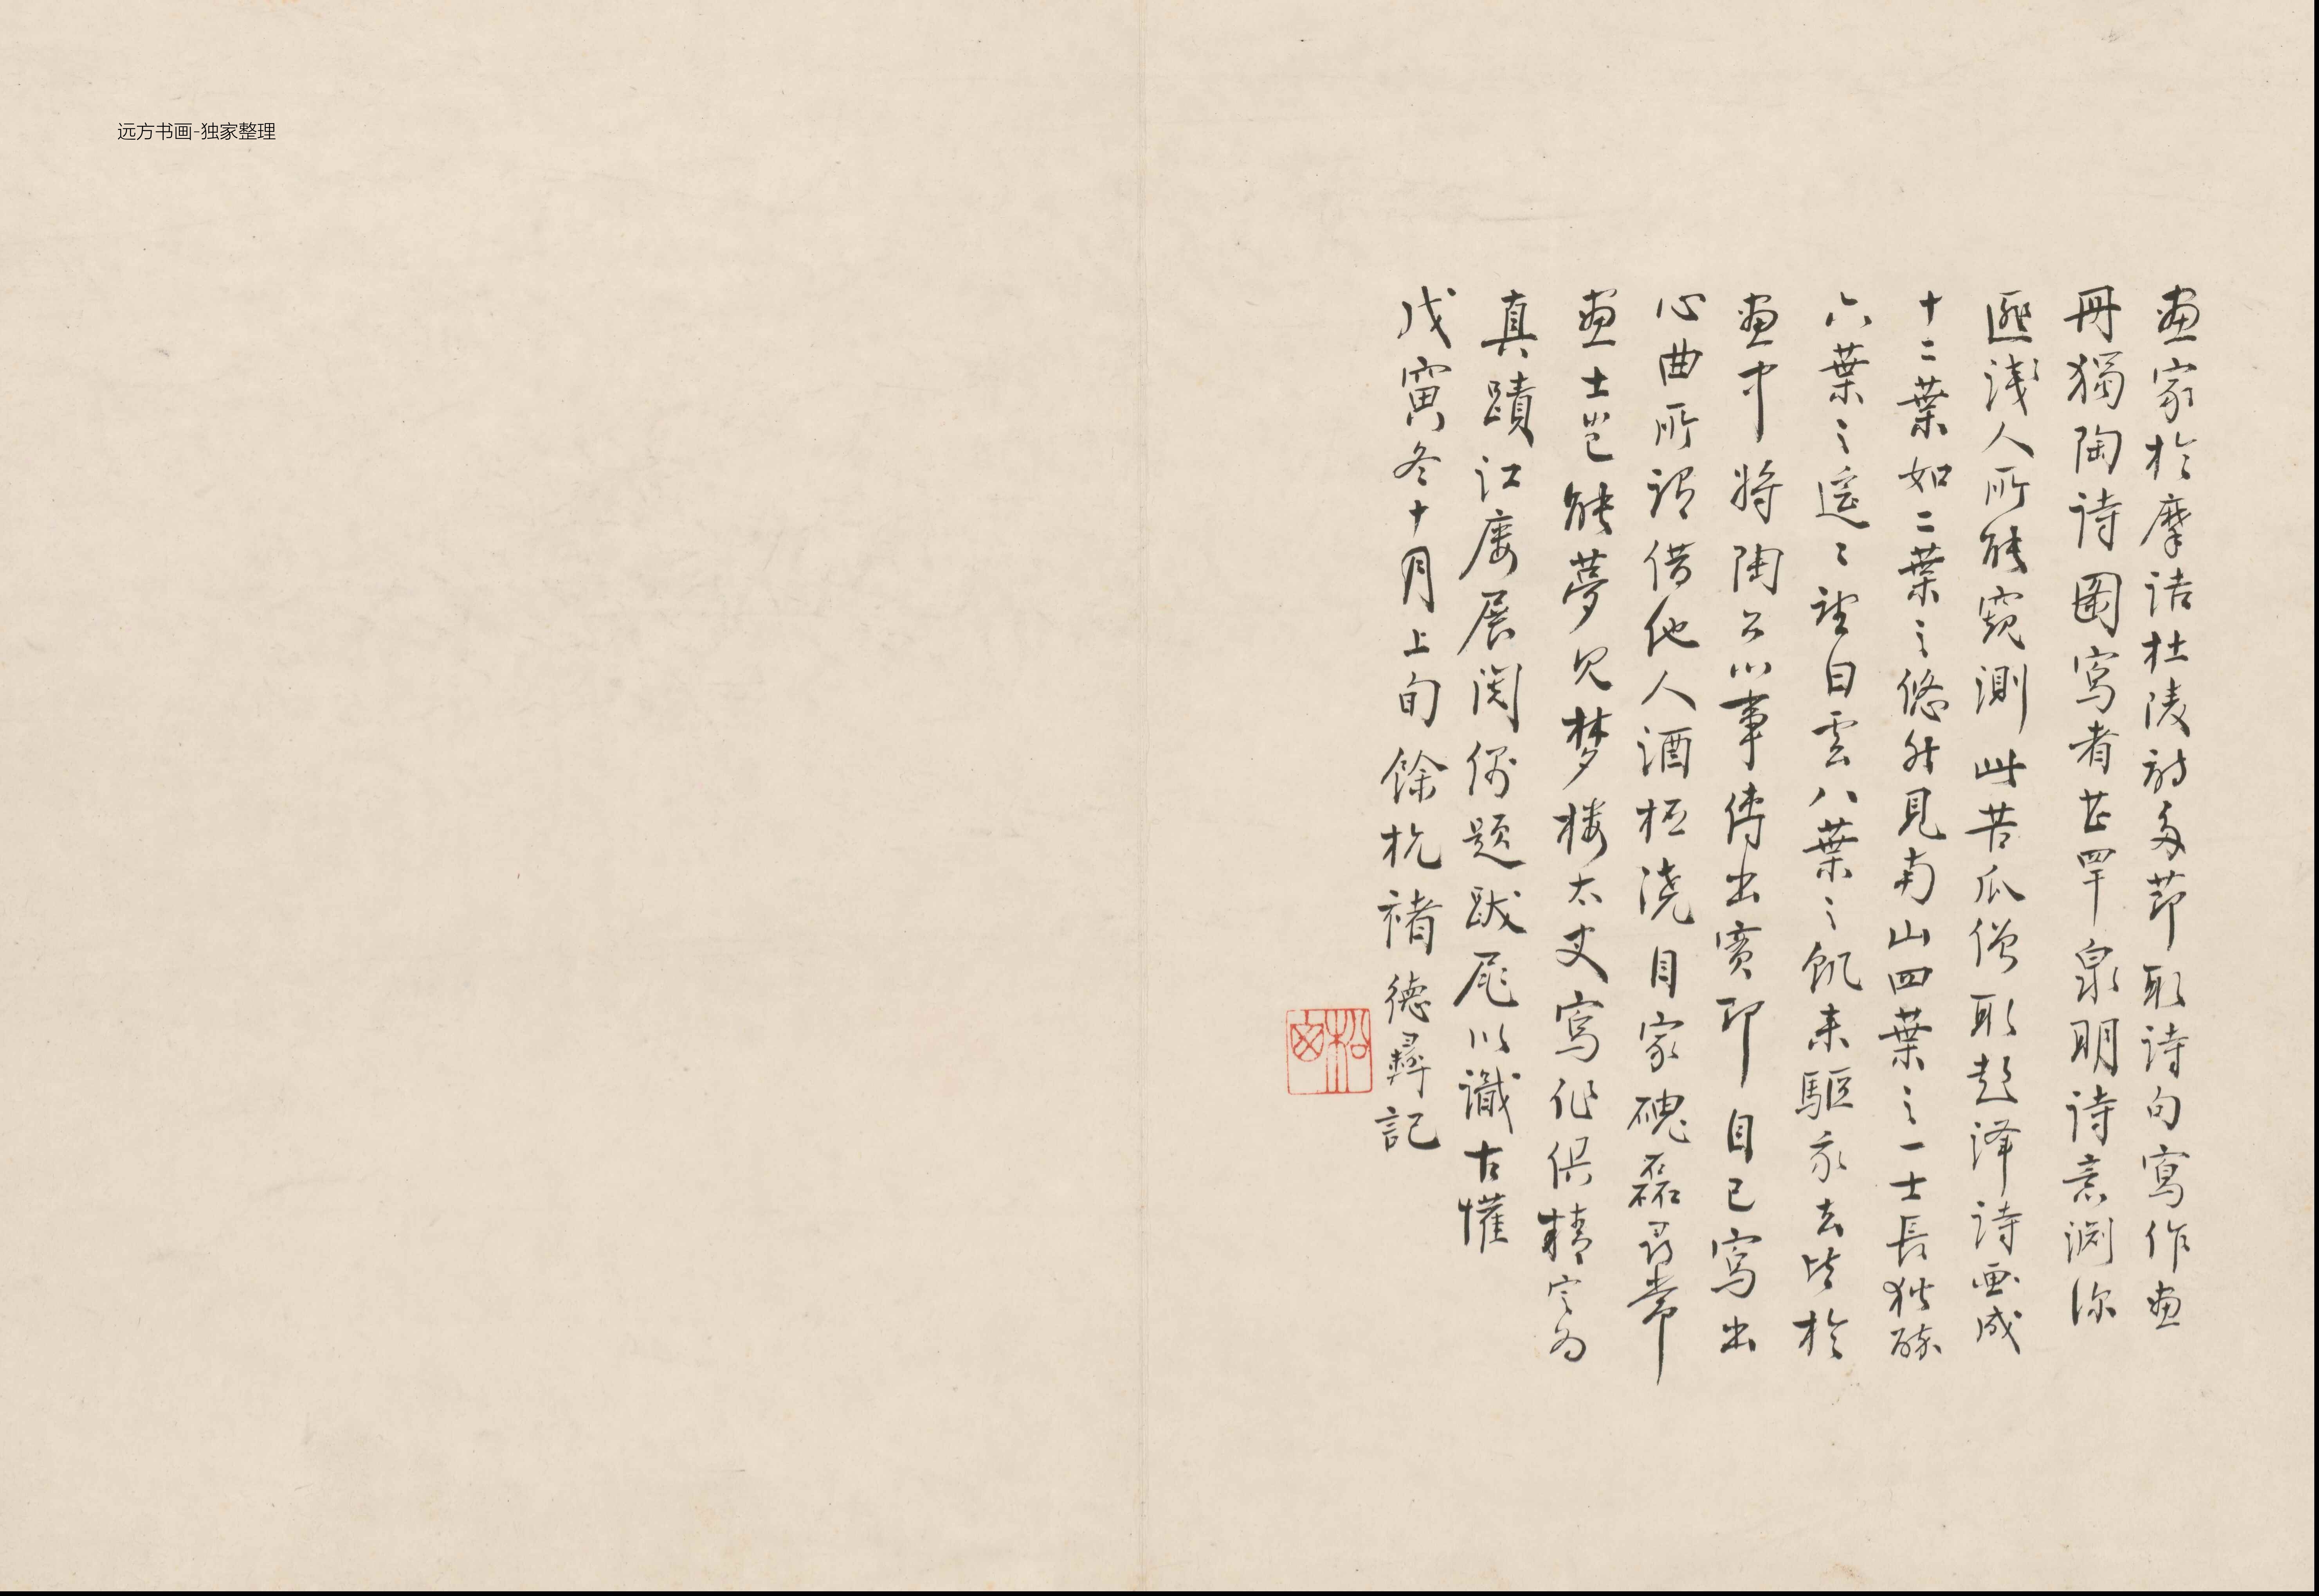 畫家於摩詰杜陵詩多節取詩句寫作畫
冊獨陶詩圖寫者甚罕泉明詩意淵深
匪淺人所能窺測此苦瓜僧取彭澤詩畫成
十二葉如二葉之悠然見南山四葉之一士長獨醉
六葉之遙遙望白雲八葉之飢來驅我去皆於
畫中將陶公心事傳出實即自己寫出
心曲所謂借他人酒桮澆自家磈磊尋常
畫士豈能夢見夢樓太史寫作俱精定為
真蹟江廔展閱偶題跋尾以識古懽
戊寅冬十月上旬餘杭褚德彝記
松窗
远方书画-独家整理